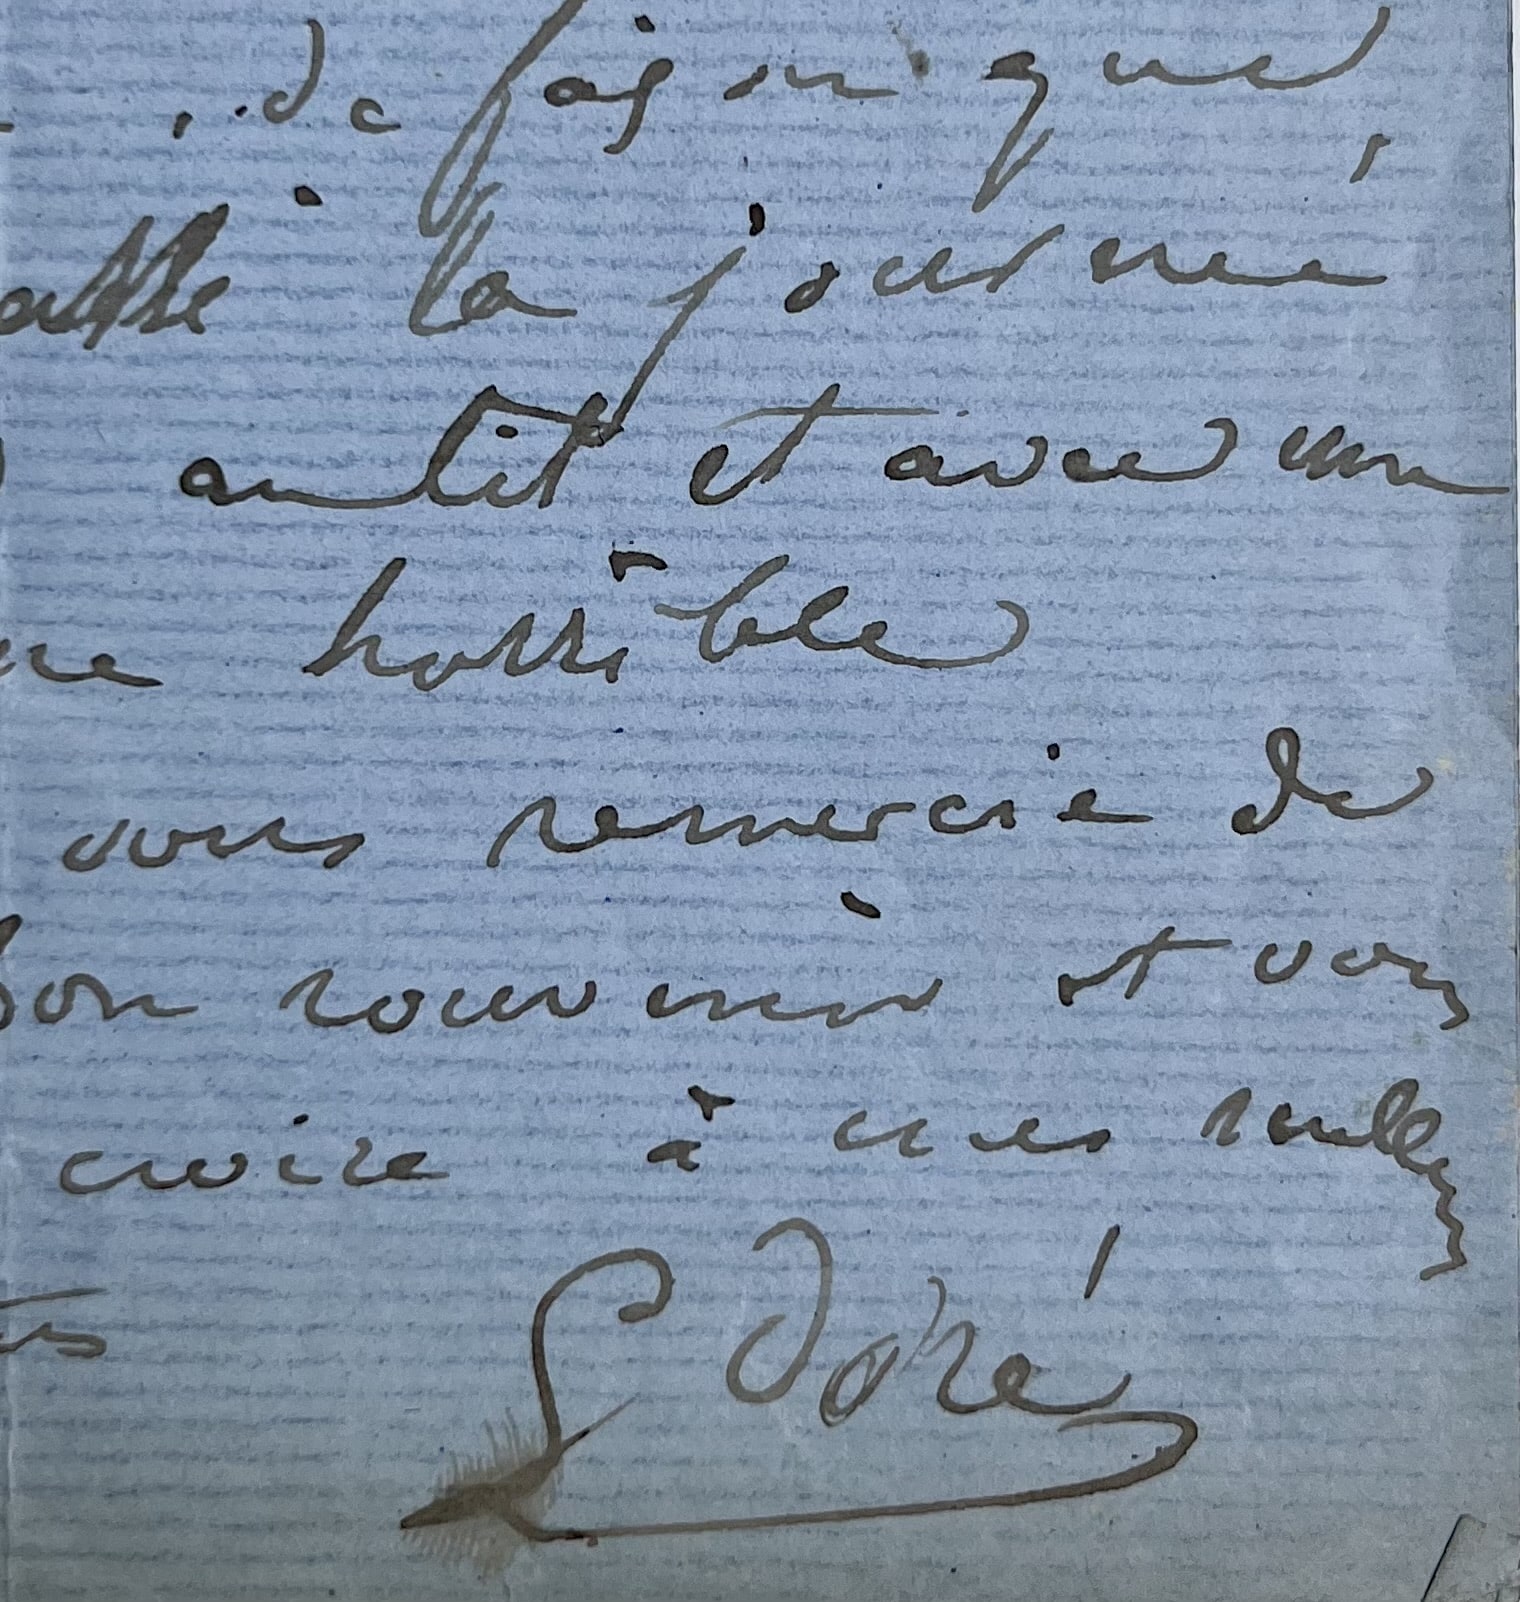 de façon que
la journée
au lit et avec une
horrible
vous remercie de
bon souvenir et vous
croire à mes meilleurs
G Doré